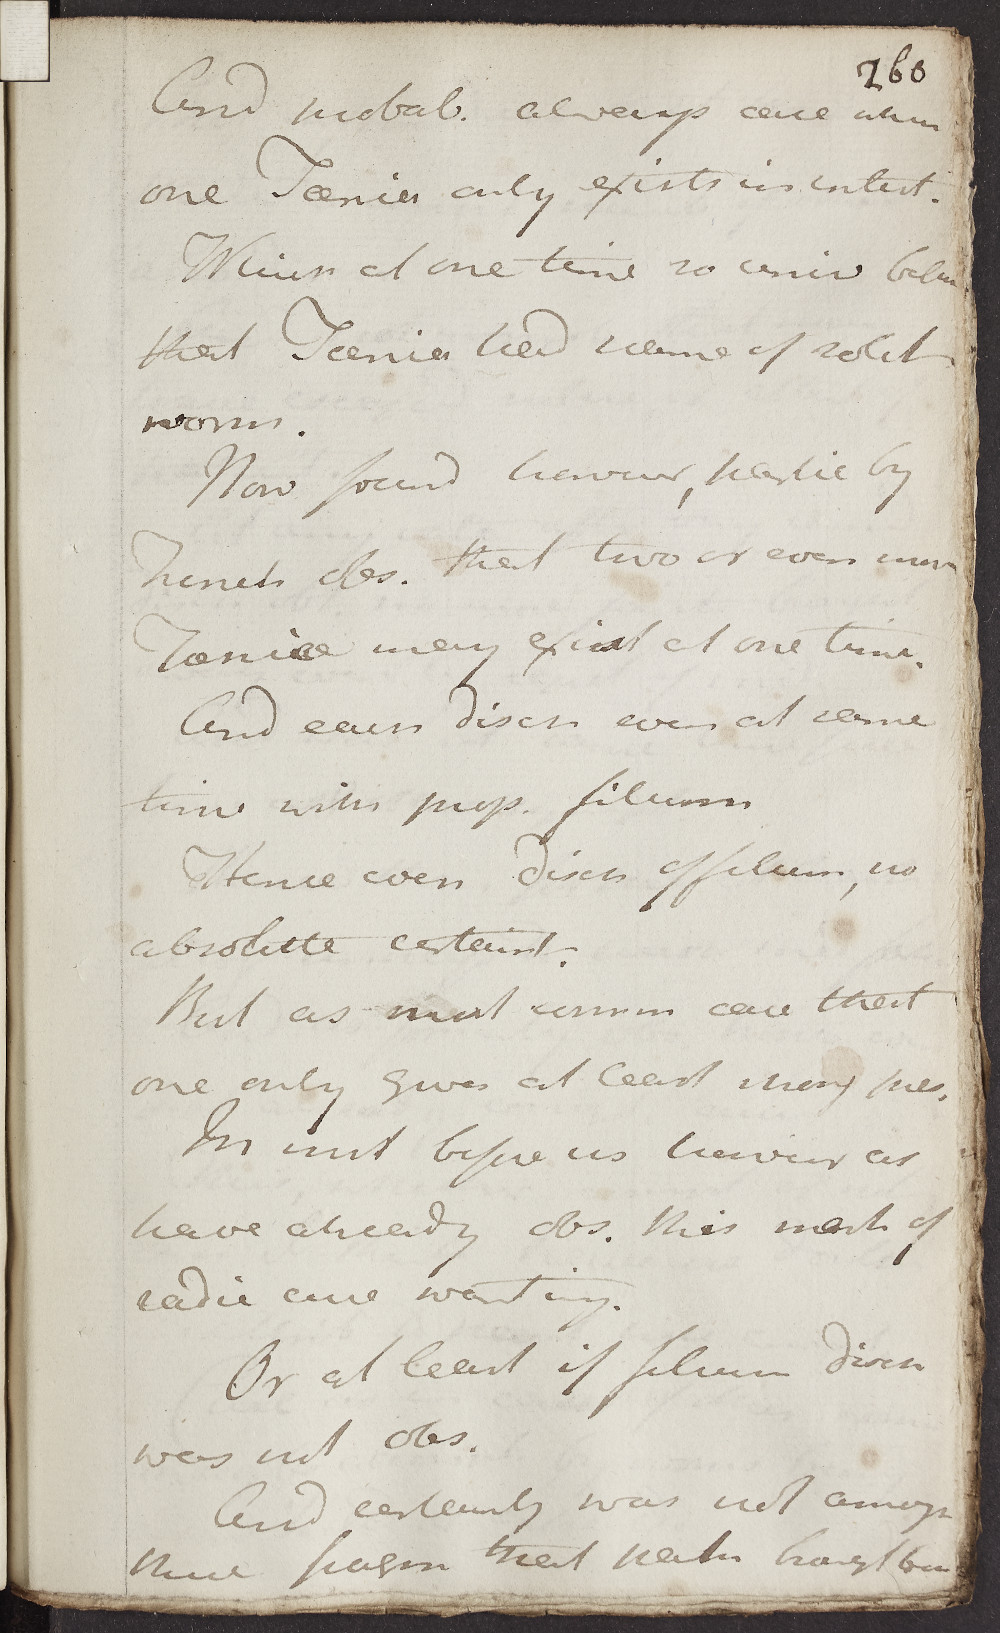 260
And probab. always case when
one Tœnia only exists in intest.
Which at one time so univ belie
that Tœnia had name of solit
worm.
Now found however, partic by
French obs. that two or even more
Tœniæ may exist at one time.
And each disch even at same
time with prop. filum
Hence even disch of filum, no
absolute certaint.
But as most comm case that
one only gives at least strong pres.
In inst before us however as
have already obs. this mark of
radic cure wanting.
Or at least if filum disch
was not obs.
And certainly was not among
those fragm that patn brought